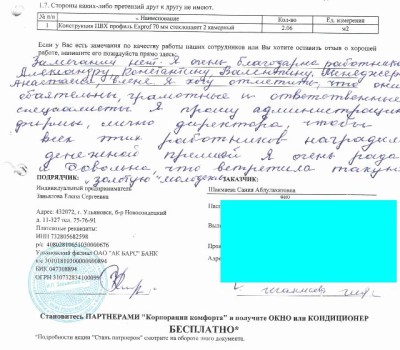 1.7. Стороны каких-либо претензий друг к другу не имеют.
№ п/п Наименование Кол-во Ед. измерения
1 Конструкция ПВХ профиль Exprof 70 мм стеклопакет 2 камерный 2.06 м2
Если у Вас есть замечания по качеству работы наших сотрудников или Вы хотите оставить отзыв о хорошей
работе, напишите его пожалуйста прямо здесь:
Замечаний нет. Я очень благодарна работникам
Александру, Константину, Валентину, менеджеру
Анастасии. Я хочу отметить, что они
обаятельны, грамотные и ответственные
специалисты. Я прошу администрацию
фирмы, лично директора, чтобы
всех этих работников наградили
денежной премией. Я очень рада
и довольна, что встретила такую
"золотую" молодежь
ПОДРЯДЧИК: ЗАКАЗЧИК:
Индивидуальный предприниматель
Завьялова Елена Сергеевна
Адрес: 432072, г. Ульяновск, б-р Новосондецкий
д. 11-327 тел. 75-76-91
Платежные реквизиты:
ИНН
р/с
Ульяновский филиал ОАО "АК БАРС" БАНК
к/с
БИК 047308894
ОГРН
Становитесь ПАРТНЕРАМИ "Корпорация комфорта" и получите ОКНО или КОНДИЦИОНЕР
БЕСПЛАТНО*
*Подробности акции "Стань партнером" смотрите на обороте этого документа.